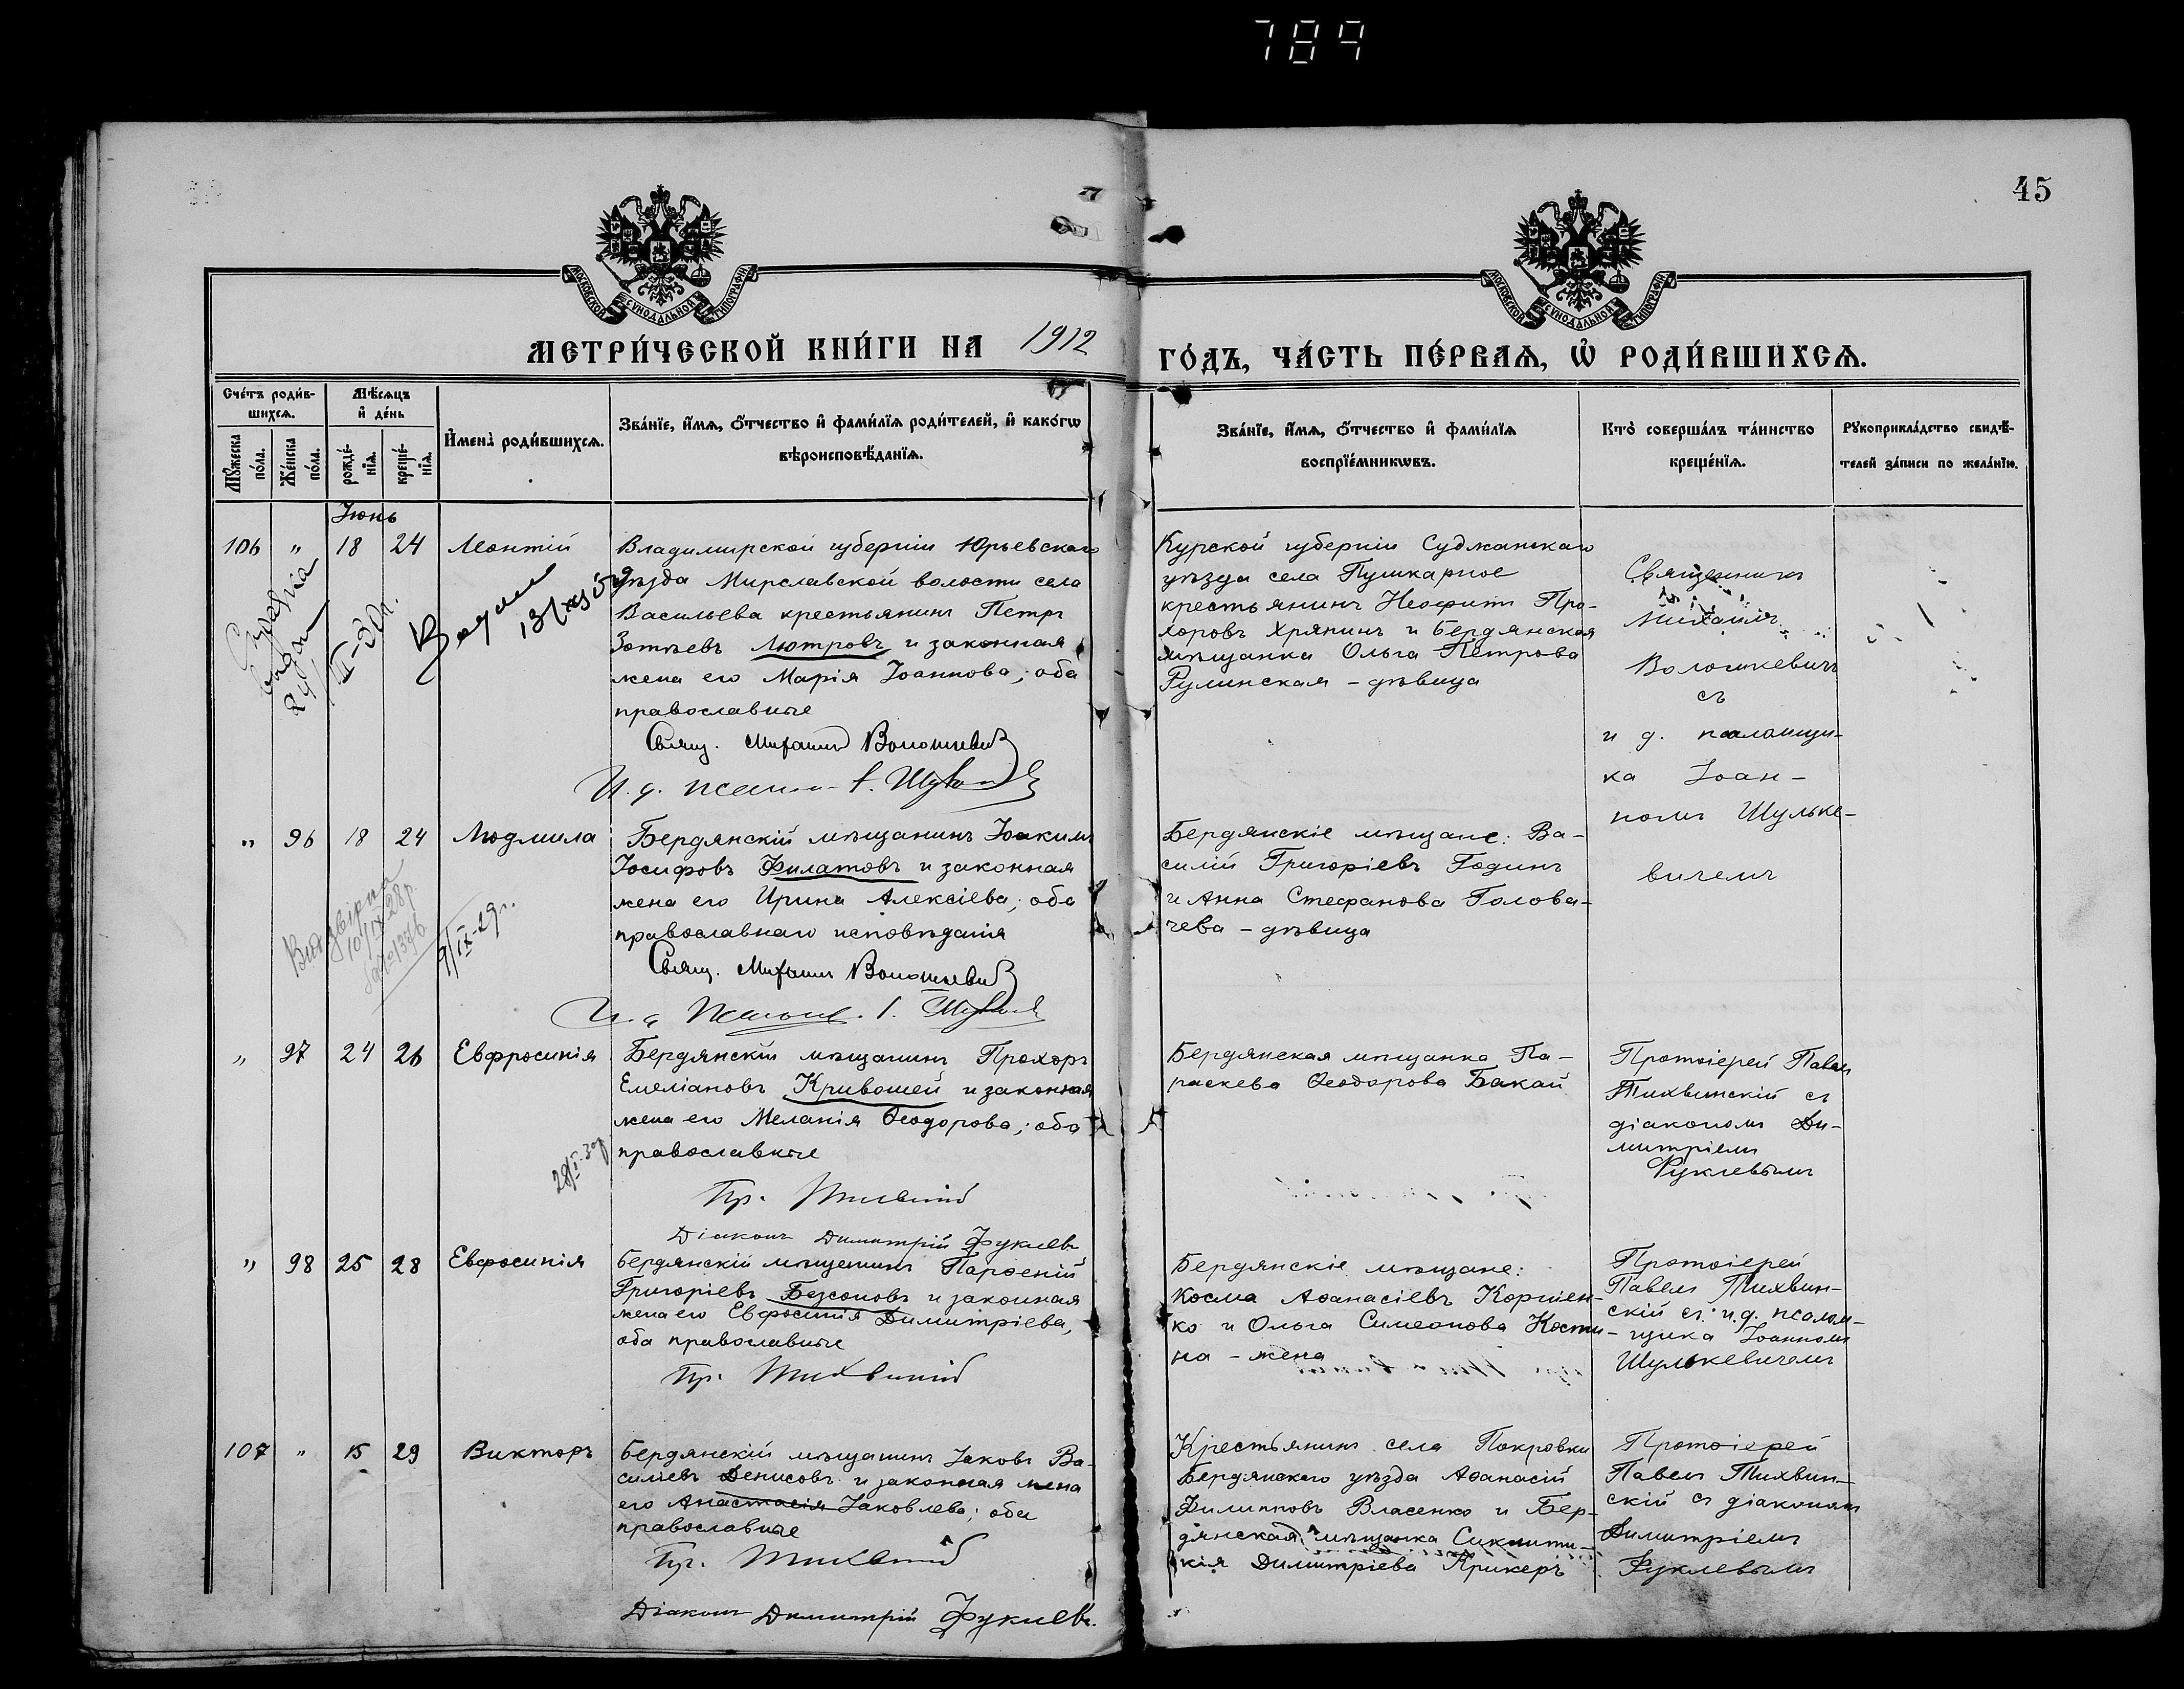 789
45
МОСКОВСКОЙ СѴНОДАЛЬНОЙ ТИПОГРАФІИ
МОСКОВСКОЙ СѴНОДАЛЬНОЙ ТИПОГРАФІИ
МЕТРИ́ЧЕСКОЙ КНИ́ГИ НА 1912
ГО́ДЪ, ЧА́СТЬ ПЕ́РВАѦ, Ѽ РОДИ́ВШИХСѦ.
Сче́тъ роди́в-
шихсѧ.
Мѣ́сѧцъ
и҆ де́нь
Мꙋ́жеска
по́ла.
Же́нска
по́ла.
рожде́-
нїѧ.
креще́-
нїѧ.
И҆мена̀ роди́вшихсѧ.
Зва́нїе, и҆́мѧ, ѻ҆́тчество и҆ фами́лїѧ роди́телей, и҆ како́гѡ
вѣроисповѣ́данїѧ.
Зва́нїе, и҆́мѧ, ѻ҆́тчество и҆ фами́лїѧ
воспрїе́мникѡвъ.
Кто̀ соверша́лъ та́инство
креще́нїѧ.
Рꙋкоприкла́дство свидѣ́-
телей за́писи по жела́нїю.
Июнь
106 " 18 24 Леонтій
Владимирской губерніи Юрьевскаго
уѣзда Мирславской волости села
Васильева крестьянинъ Петръ
Зотѣевъ Лютровъ и законная
жена его Марія Іоаннова; оба
православные
Свящ. Михаилъ Волошкевичъ
И. д. псалом. І. Шульк
Курской губерніи Суджанскаго
уѣзда села Пушкарное
крестьянинъ Неофитъ Про-
хоровъ Хряпинъ и Бердянская
мѣщанка Ольга Петрова
Румянская – дѣвица
Священникъ
Михаилъ
Волошкевичъ
съ
и д. псаломщи-
ка Іоан-
номъ Шульке-
вичемъ
" 96 18 24 Людмила
10/IX 28 р.
9/IX-29 г.
Бердянскій мѣщанинъ Іоакимъ
Іосифовъ Филатовъ и законная
жена его Ирина Алексіева; оба
православнаго исповѣданія
Свящ. Михаилъ Волошкевичъ
И. д. Псалом. І. Шульк
Бердянскіе мѣщане: Ва-
силій Григоріевъ Годинъ
и Анна Стефанова Голова-
чева – дѣвица
" 97 24 26 Евфросинія
Бердянскій мѣщанинъ Прохоръ
Емеліановъ Кривошей и законная
жена его Меланія Ѳеодорова; оба
православные
Пр. Тихвинскій
Діаконъ Димитрій Фуклевъ
Бердянская мѣщанка Па-
раскева Ѳеодорова Бакай
Протоіерей Павелъ
Тихвинскій съ
діакономъ Ди-
митріемъ
Фуклевымъ
" 98 25 28 Евфросинія
Бердянскій мѣщанинъ Парѳеній
Григоріевъ Безсоновъ и законная
жена его Евфросинія Димитріева,
оба православные
Пр. Тихвинскій
Бердянскіе мѣщане:
Косма Аѳанасіевъ Коршен-
ко и Ольга Симеонова Кости-
на – жена
Протоіерей
Павелъ Тихвин-
скій съ и.д. псалом-
щика Іоанномъ
Шулькевичемъ
107 " 15 29 Викторъ
Бердянскій мѣщанинъ Іаковъ Ва-
силіевъ Денисовъ и законная жена
его Анастасія Іаковлева; оба
православные
Пр. Тихвинскій
Діаконъ Димитрій Фуклевъ.
Крестьянинъ села Покровки
Бердянскаго уѣзда Аѳанасій
Филипповъ Власенко и Бер-
дянская мѣщанка Синкліти-
кія Димитріева Крикеръ
Протоіерей
Павелъ Тихвин-
скій съ діакономъ
Димитріемъ
Фуклевымъ